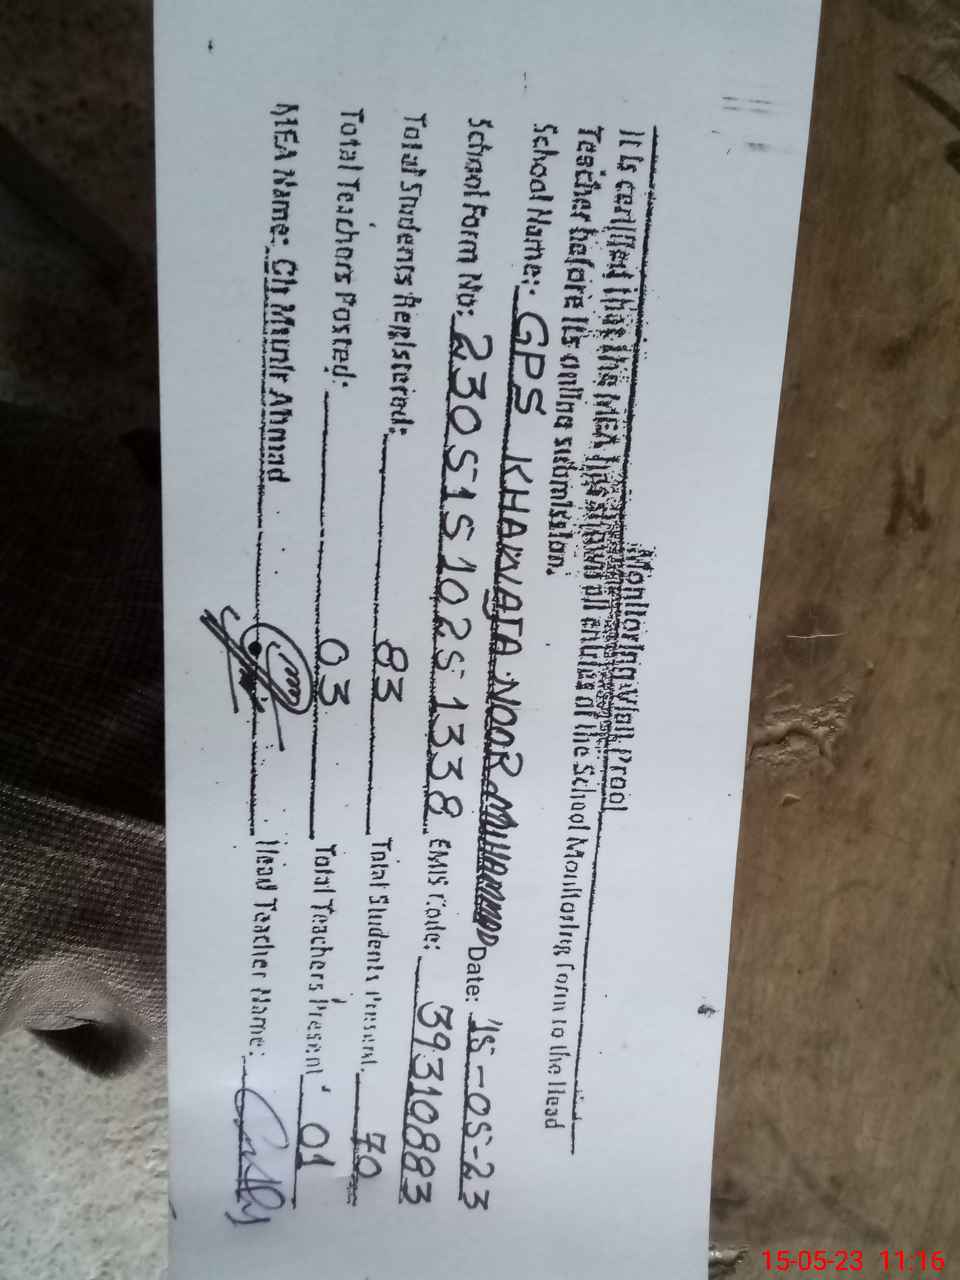 Monitoring Visit Proof
It is certified that the MEA has shown all entries of the School Monitoring Form to the Head
Teacher before its online submission.
School Name:- GPS KHAWAJA NOOR MUHAMMAD Date: 15-05-23
School Form No: 23051510251338 EMIS Code: 39310883
Total Students Registered: 83 Total Students Present: 70
Total Teachers Posted: 03 Total Teachers Present: 01
MEA Name: Ch Munir Ahmad Head Teacher Name:
15-05-23 11:16